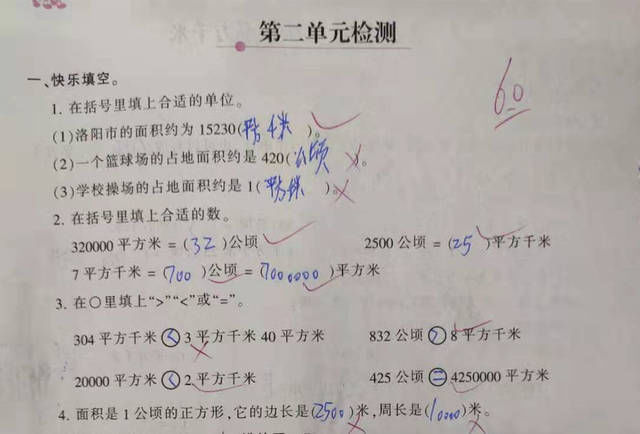 第二单元检测
60
一、快乐填空。
1. 在括号里填上合适的单位。
(1)洛阳市的面积约为15230(平方千米)。
(2)一个篮球场的占地面积约是420(公顷)。
(3)学校操场的占地面积约是1(平方米)。
2. 在括号里填上合适的数。
320000平方米=(32)公顷 2500公顷=(25)平方千米
7平方千米=(700)公顷=(7000000)平方米
3. 在○里填上“>”“<”或“=”。
304平方千米<3平方千米40平方米 832公顷>8平方千米
20000平方米<2平方千米 425公顷=4250000平方米
4. 面积是1公顷的正方形,它的边长是(2500)米,周长是(10000)米。